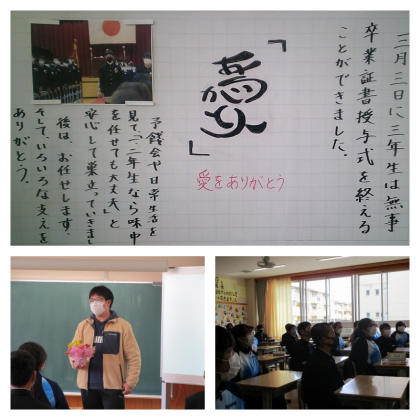 三月三日に三年生は無事
卒業証書授与式を終える
ことができました。
「
」
愛をありがとう
予餞会や日常生活を
見て、「二年生なら味中
を任せても大丈夫」と
安心して巣立っていきまし
後は、お任せします。
そして、いろいろな支えを
ありがとう。